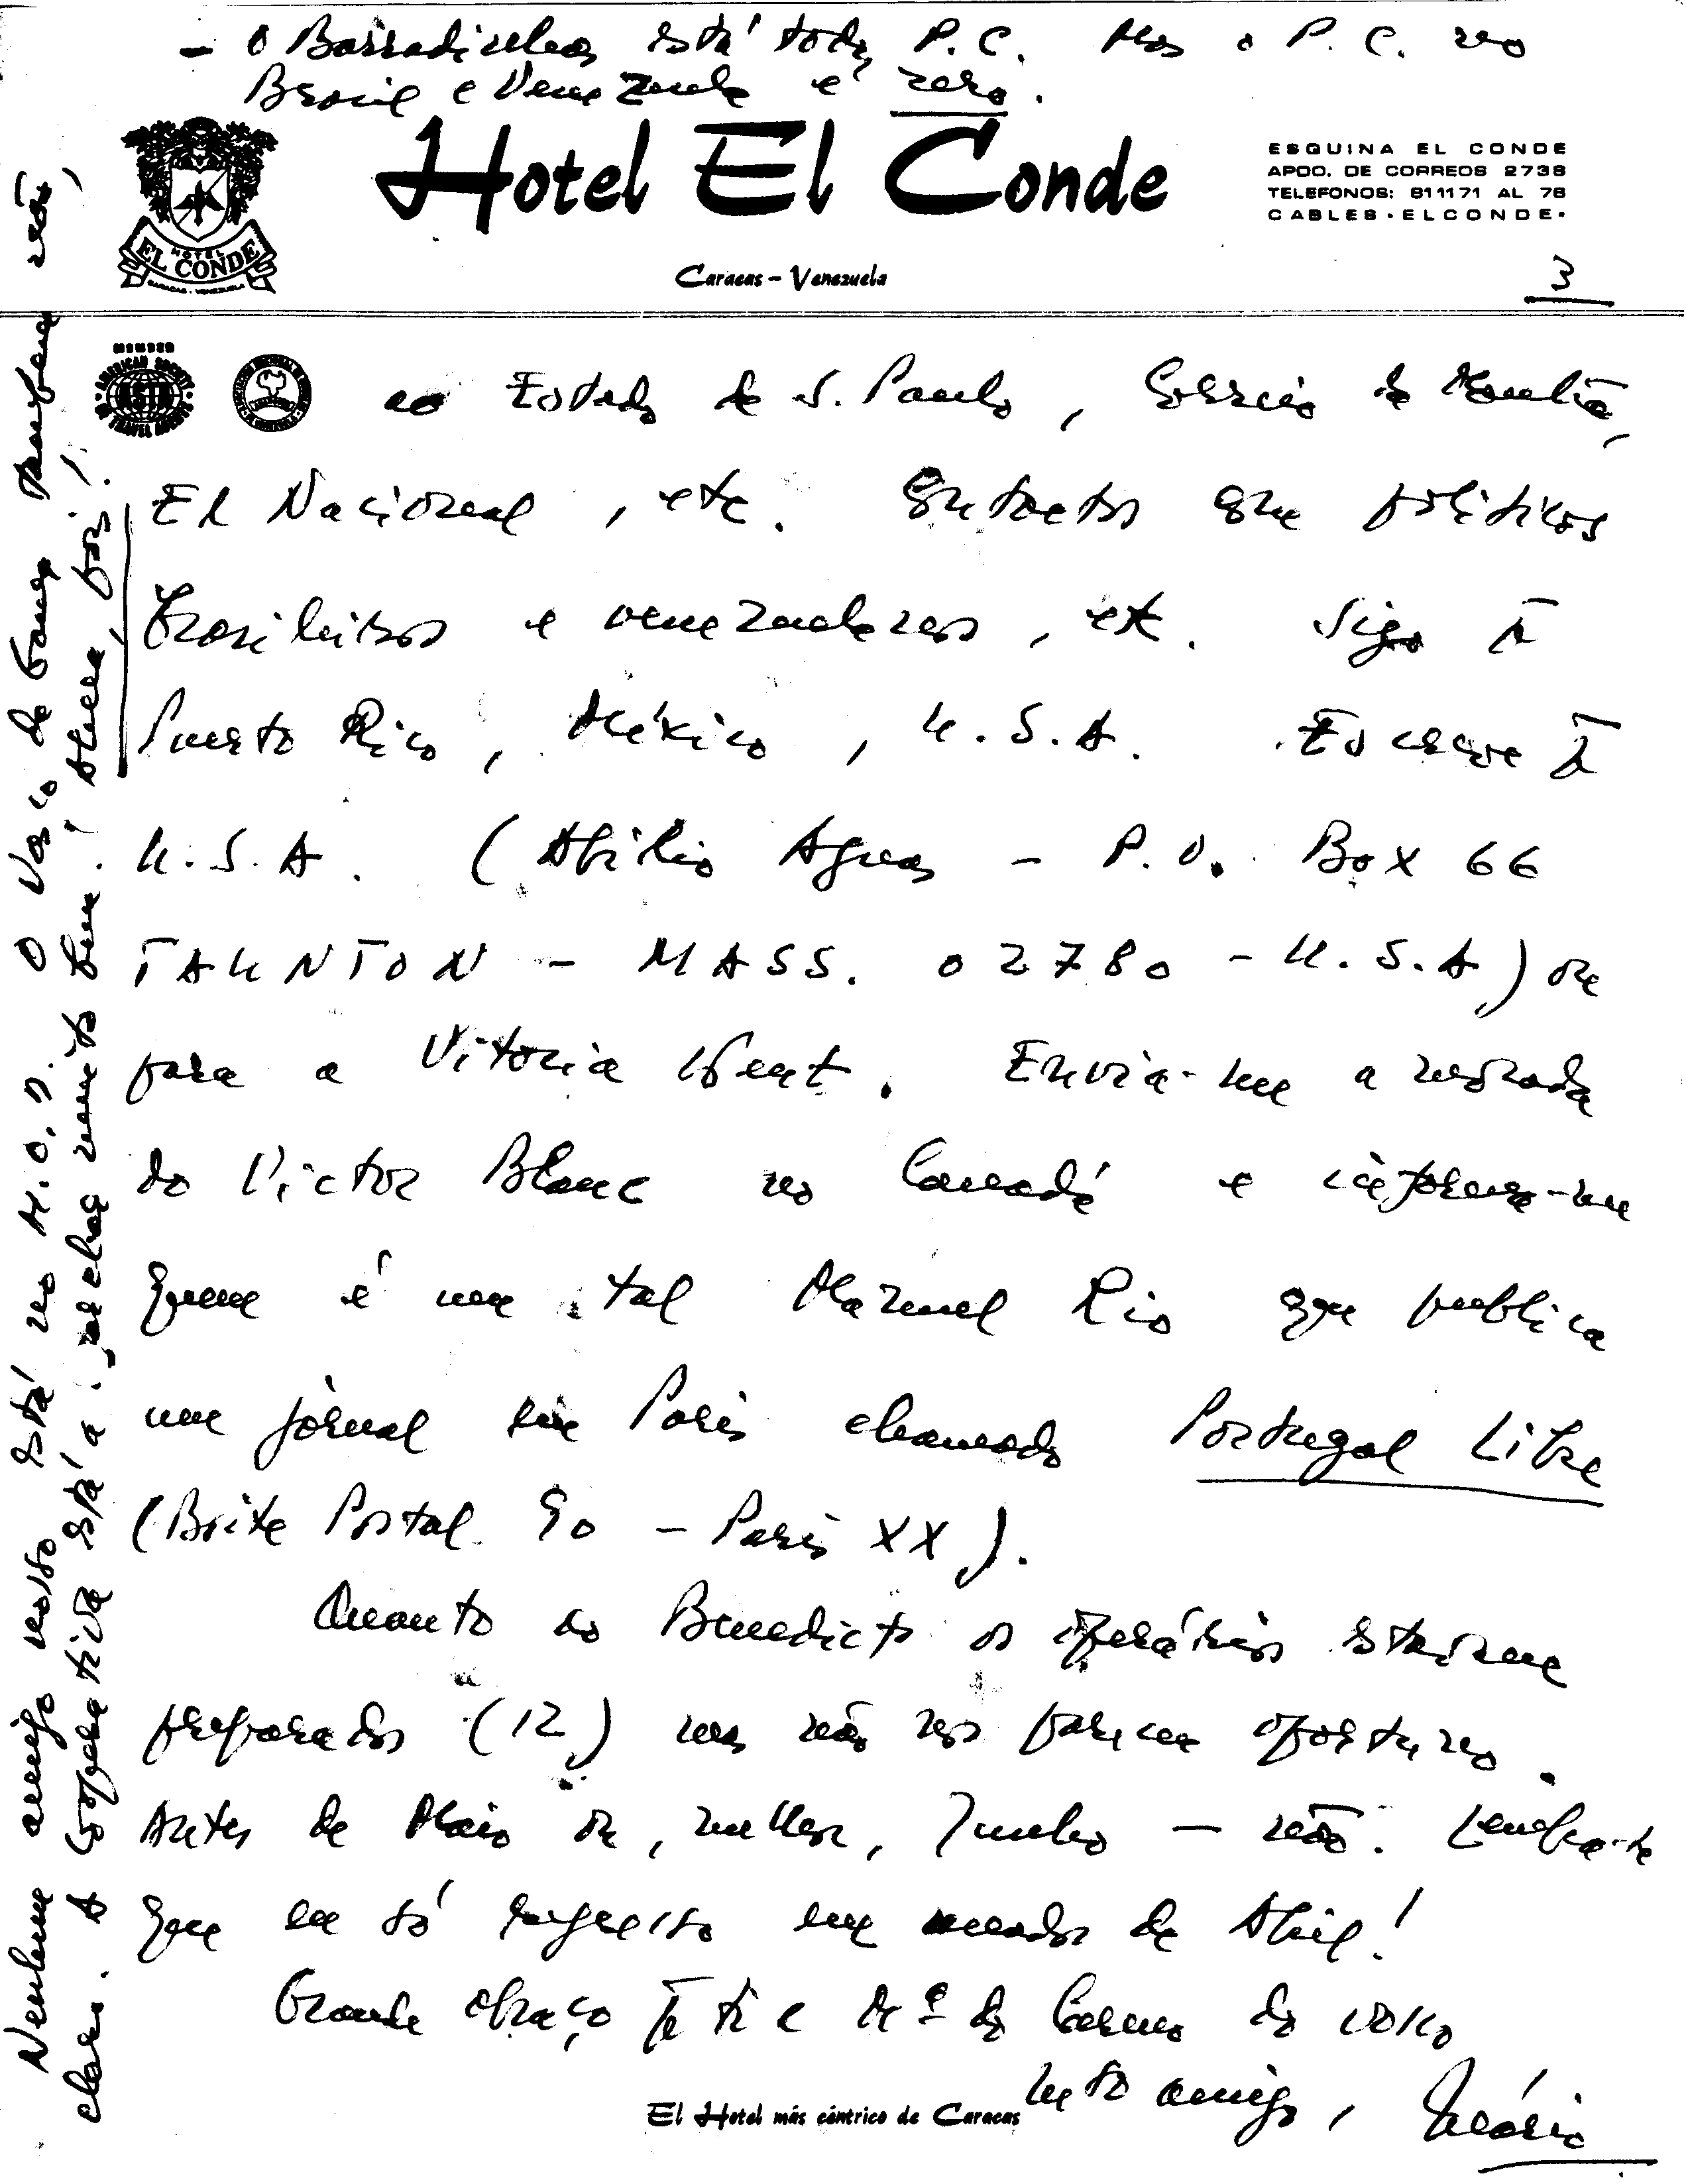 – O Barradinhas está todo P.C. Mas o P.C. no
Brasil e Venezuela é zero.
Hotel El Conde
ESQUINA EL CONDE
APDO. DE CORREOS 2738
TELEFONOS: 811171 AL 78
CABLES·ELCONDE·
HOTEL
EL CONDE
CARACAS - VENEZUELA
Caracas – Venezuela
3
MEMBER
AMERICAN SOCIETY
ASTA
OF TRAVEL AGENTS
ao Estado de S. Paulo, Correio da Manhã,
El Nacional, etc. Contactos com políticos
brasileiros e venezuelanos, etc. Sigo p.ª
Puerto Rico, México, U.S.A. Escreve p.ª
U.S.A. (Abílio Aguas – P.O. Box 66
TAUNTON – MASS. 02780 – U.S.A) ou
para a Vitoria Kent. Envia-me a morada
do Victor Blanc no Canadá e informa-me
quem é um tal Manuel Rio que publica
um jornal em Paris chamado Portugal Libre
(Boite Postal 90 – Paris XX).
Quanto ao Benedicto os operários estariam
preparados (12) mas não nos parece oportuno.
Antes de Maio ou, melhor, Junho – não. Lembra-te
que eu só regresso em meados de Abril!
Grande abraço p.ª ti e M.ª do Carmo do vosso
mto amigo, Mário
El Hotel más céntrico de Caracas
Nenhum amigo nosso está no M.O.D. O Vasco da Gama Também não,
claro. A Cooperativa está a marchar muito bem! Merda, pois!